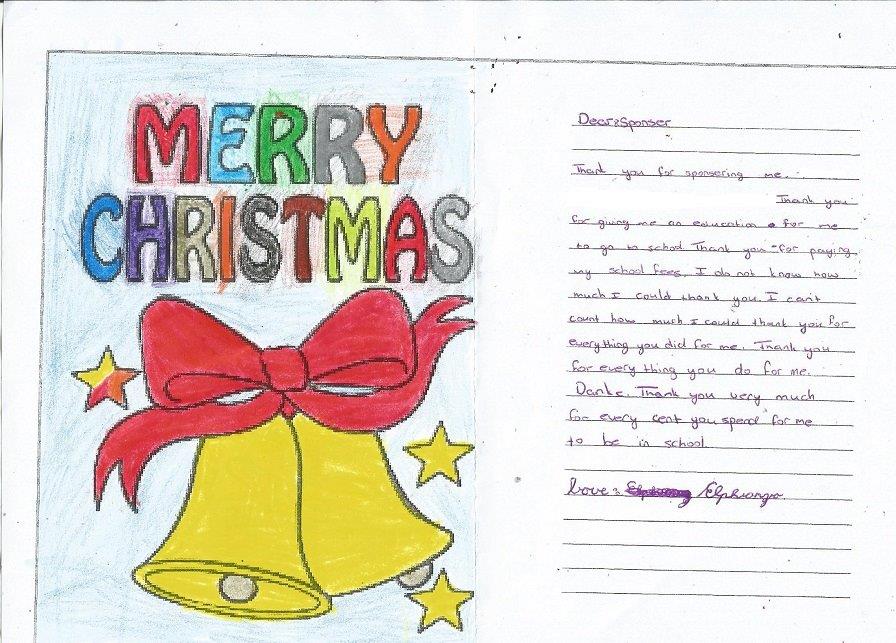 MERRY
CHRISTMAS
Dear:Sponser
Thank you for sponsering me.
Thank you
for giving me an education for me
to go to school. Thank you for paying
my school fees. I do not know how
much I could thank you. I can't
count how much I could thank you for
everything you did for me. Thank you
for every thing you do for me.
Danke. Thank you very much
for every cent you spend for me
to be in school.
Love: